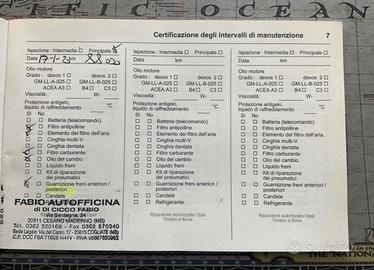 OCEAN
Certificazione degli intervalli di manutenzione
7
Ispezione : Intermedia Principale
Data km 88
Olio motore
Grado : dexos 1 dexos 2
GM-LL-A-025 GM-LL-B-025
ACEA A3 B4 C3
Viscosità: W-
Protezione antigelo,
liquido di raffreddamento °C
Sì No
Batteria (telecomando)
Filtro antipolline
Elemento del filtro dell'aria
Cinghia multi-V
Cinghia dentata
Filtro carburante
Olio del cambio
Liquido freni
Kit di riparazione
dei pneumatici
Guarnizione freni anteriori /
posteriori
FABIO AUTOFFICINA
di DI CICCO FABIO
Via Sardegna, 24
20811 CESANO MADERNO (MB)
Tel. 0362 520169 - Fax 0362 570340
Ispezione : Intermedia Principale
Data km
Olio motore
Grado : dexos 1 dexos 2
GM-LL-A-025 GM-LL-B-025
ACEA A3 B4 C3
Viscosità: W-
Protezione antigelo,
liquido di raffreddamento °C
Sì No
Batteria (telecomando)
Filtro antipolline
Elemento del filtro dell'aria
Cinghia multi-V
Cinghia dentata
Filtro carburante
Olio del cambio
Liquido freni
Kit di riparazione
dei pneumatici
Guarnizioni freni anteriori /
posteriori
Riparatore autorizzato Opel
Timbro e firma
Ispezione : Intermedia Principale
Data km
Olio motore
Grado : dexos 1 dexos 2
GM-LL-A-025 GM-LL-B-025
ACEA A3 B4 C3
Viscosità: W-
Protezione antigelo,
liquido di raffreddamento °C
Sì No
Batteria (telecomando)
Filtro antipolline
Elemento del filtro dell'aria
Cinghia multi-V
Cinghia dentata
Filtro carburante
Olio del cambio
Liquido freni
Kit di riparazione
dei pneumatici
Guarnizioni freni anteriori /
posteriori
Riparatore autorizzato Opel
Timbro e firma
subito